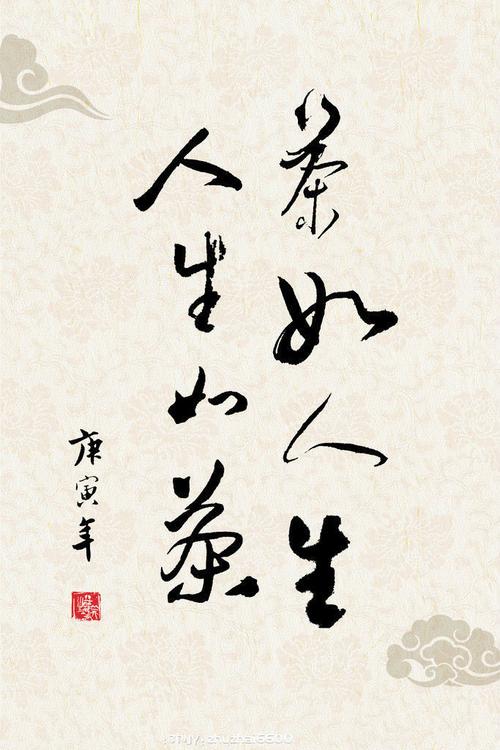 茶如人生
人生如茶
庚寅年